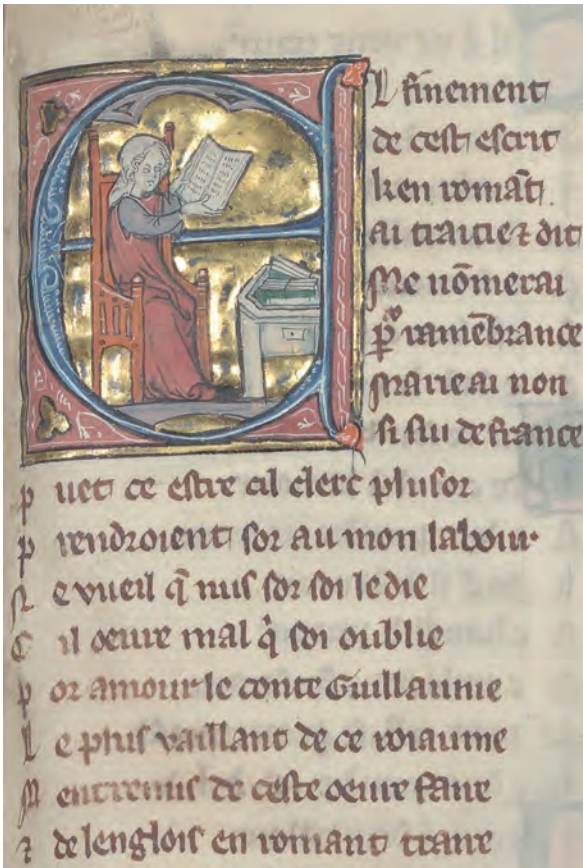 l finement
de cest escrit
ken romāt
ai traitie ⁊ dit
Me nōmerai
p̄ ramēbrance
Marie ai non
si sui de france
p uet ce estre cil clerc plusor
p rendroient sor au mon labour
N e vueil q̄ nus sor soi le die
C il oeure mal q̇ soi oublie
p or amour le conte Guillaume
L e plus vaillant de ce roiaume
M entremis de ceste oeure faire
⁊ de lenglois en romant traire